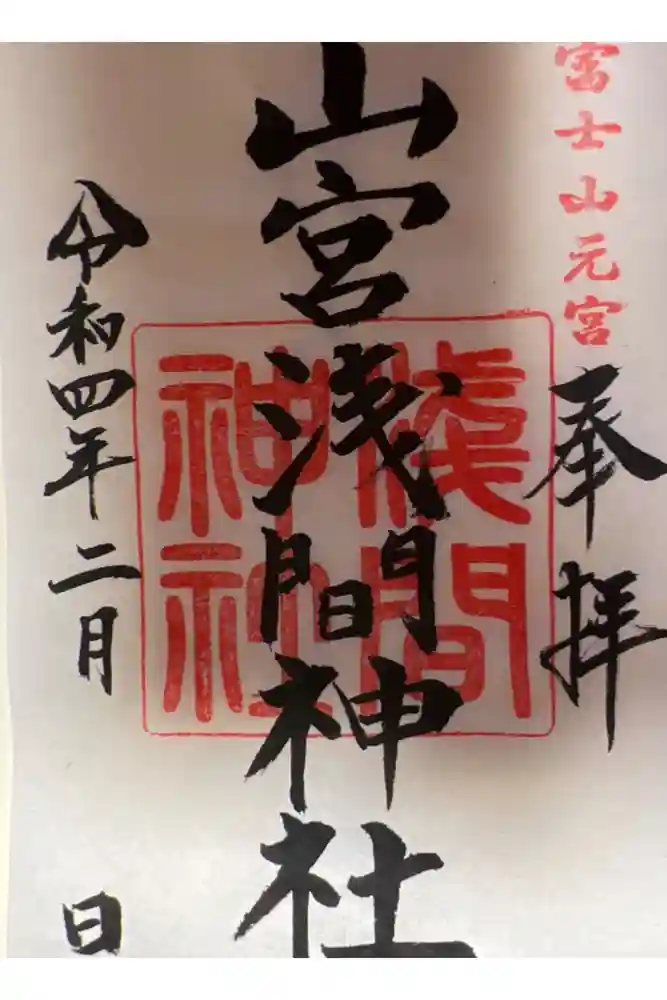 富士山元宮
奉拝
山宮浅間神社
淺間
神社
令和四年二月 日